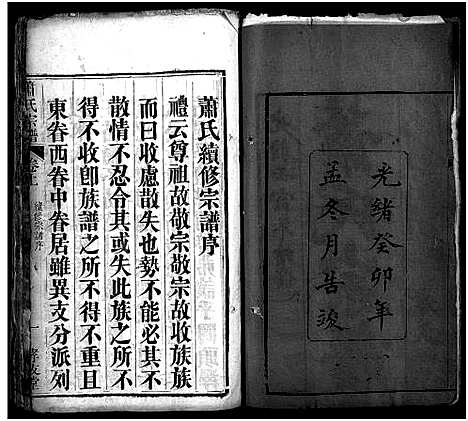 光緒癸卯年
孟冬月告竣
蕭氏續修宗譜序
禮云尊祖故敬宗敬宗故收族族
而曰收慮散失也勢不能必其不
散情不忍令其或失此族之所不
得不收卽族譜之所不得不重且
東眷西眷中眷居雖異支分派列
蕭氏宗譜
卷首
續修宗譜序
一